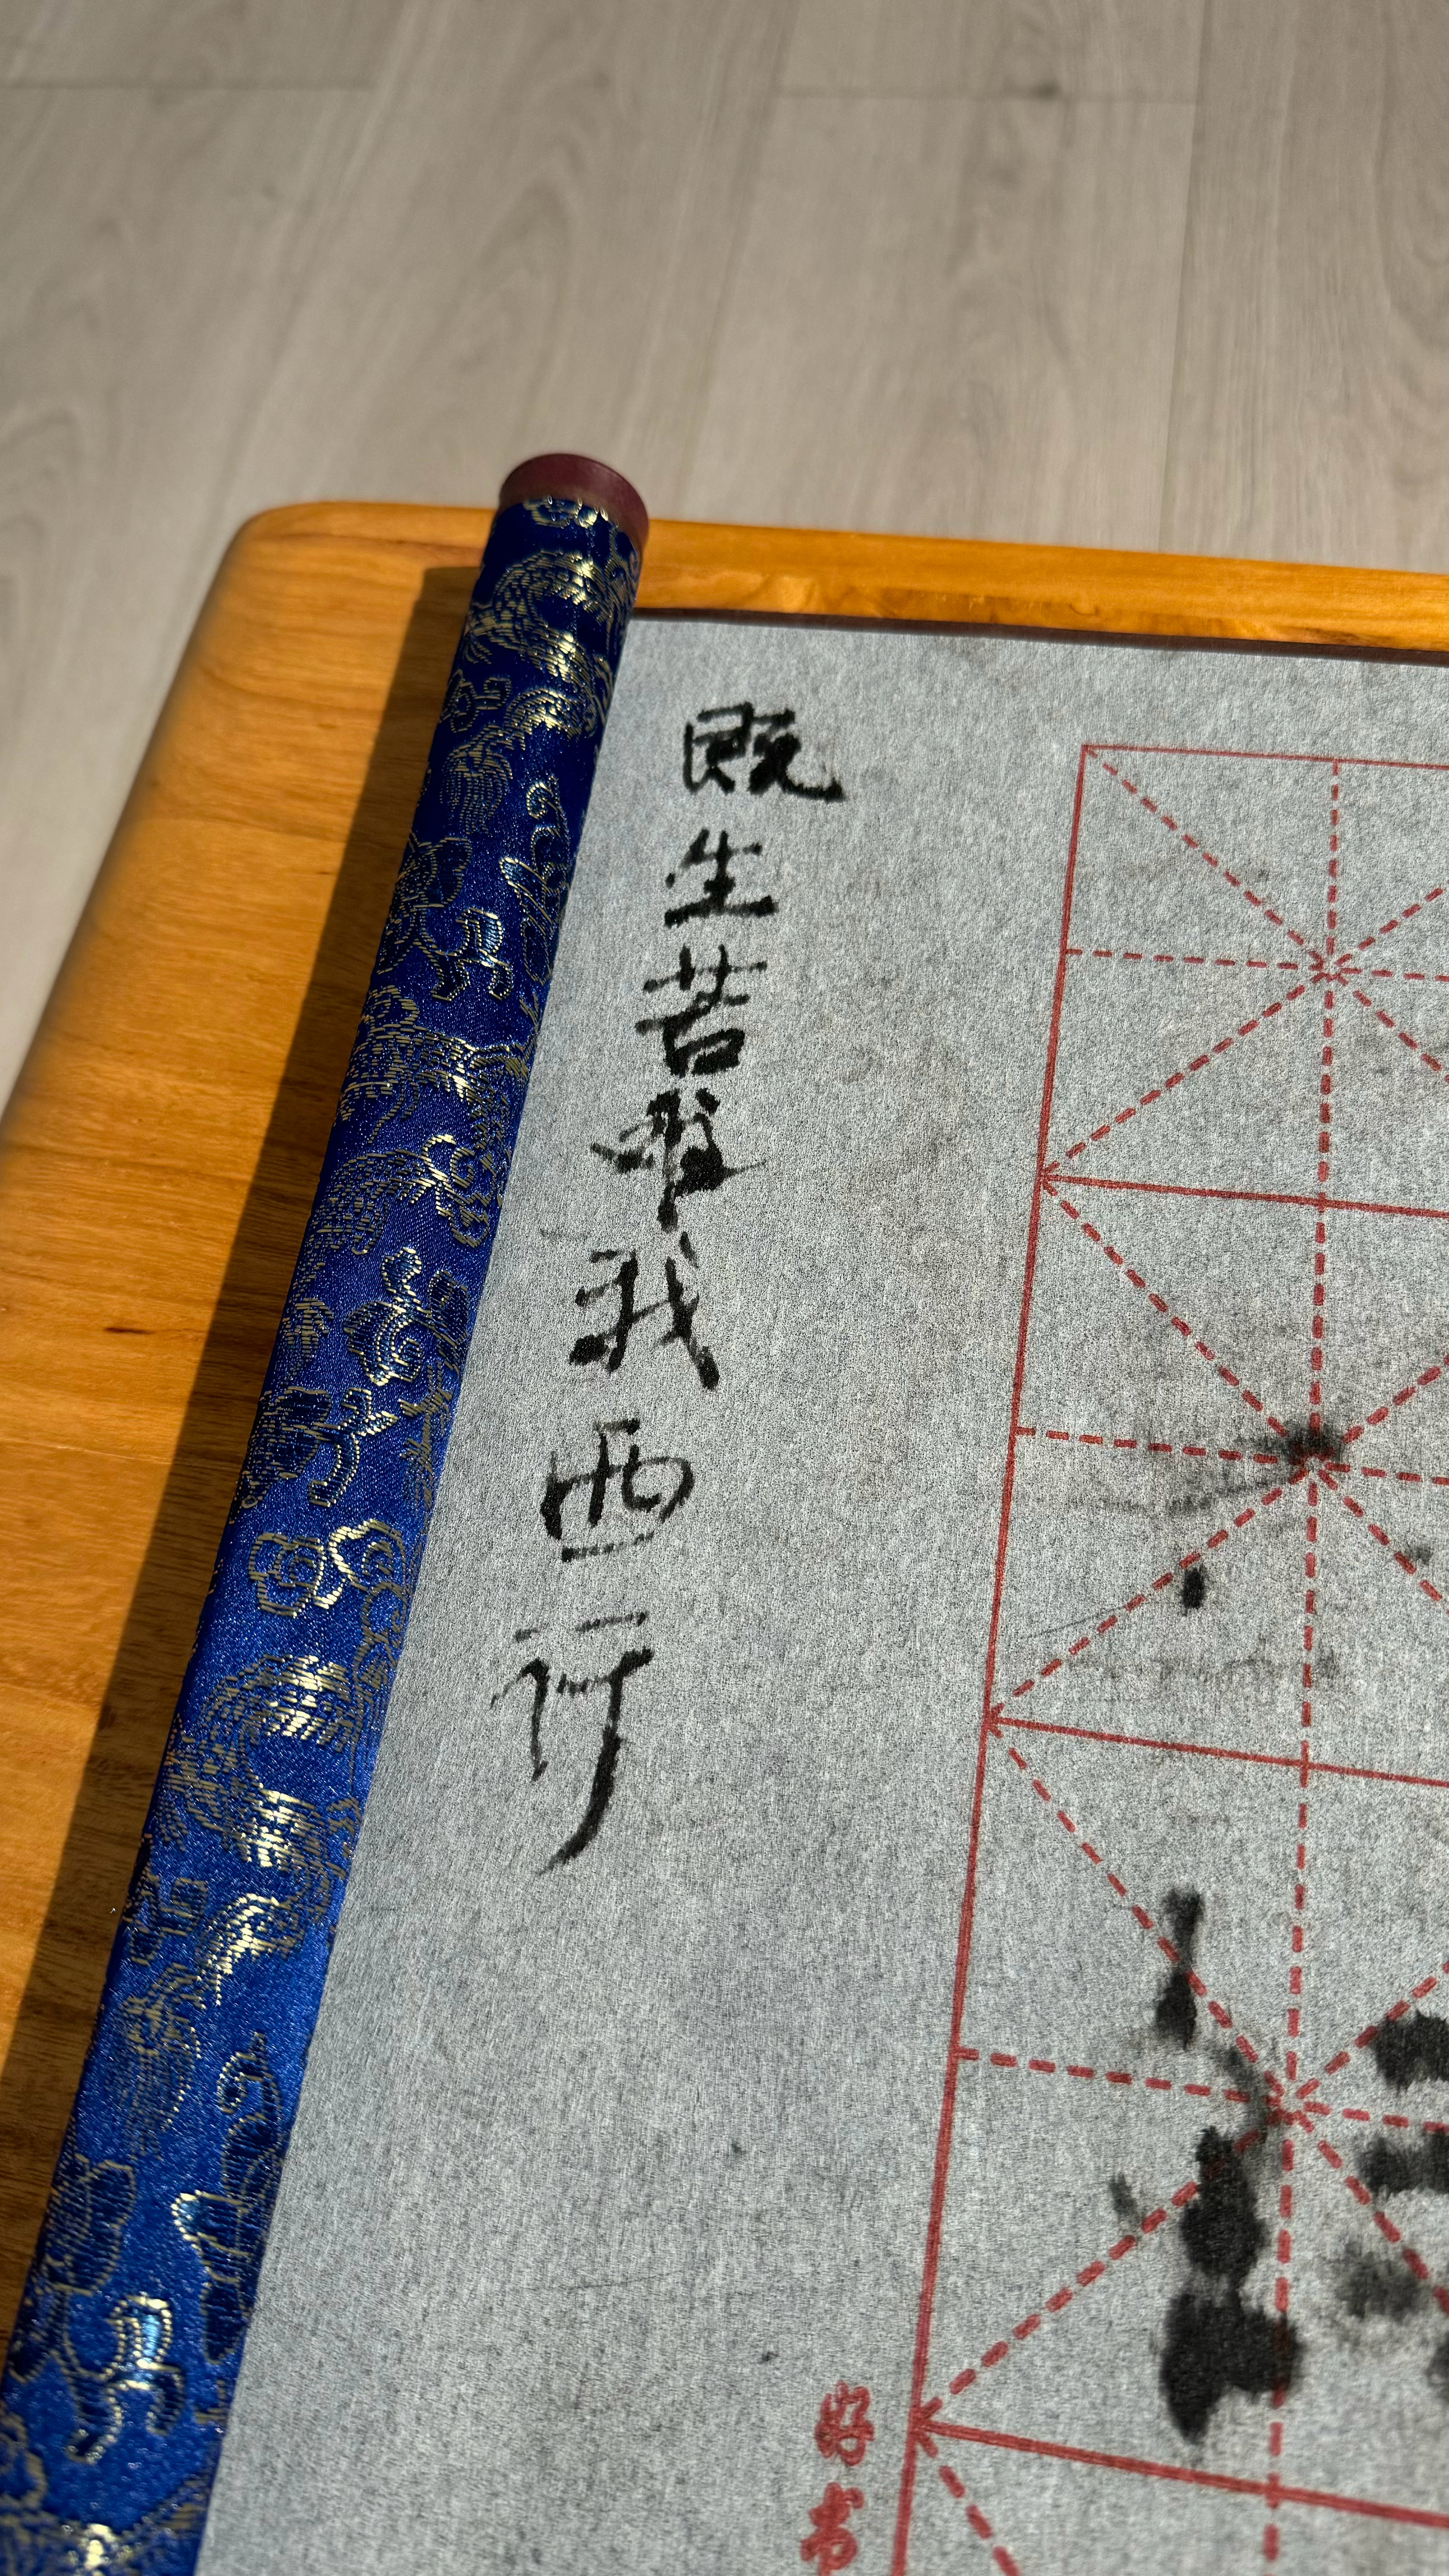 既生苦难我西行
好书